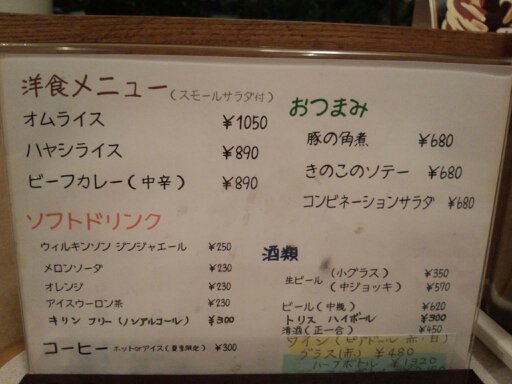 洋食メニュー（スモールサラダ付）
オムライス ¥1050
ハヤシライス ¥890
ビーフカレー（中辛） ¥890
ソフトドリンク
ウィルキンソン ジンジャエール ¥250
メロンソーダ ¥230
オレンジ ¥230
アイスウーロン茶 ¥230
キリン フリー（ノンアルコール） ¥300
コーヒー ホットorアイス（夏季限定） ¥300
おつまみ
豚の角煮 ¥680
きのこのソテー ¥680
コンビネーションサラダ ¥680
酒類
生ビール（小グラス） ¥350
（中ジョッキ） ¥570
ビール（中瓶） ¥620
トリス ハイボール ¥300
清酒（正一合） ¥450
ワイン（ピアドール 赤・白）
グラス（赤） ¥480
ハーフボトル ¥1320